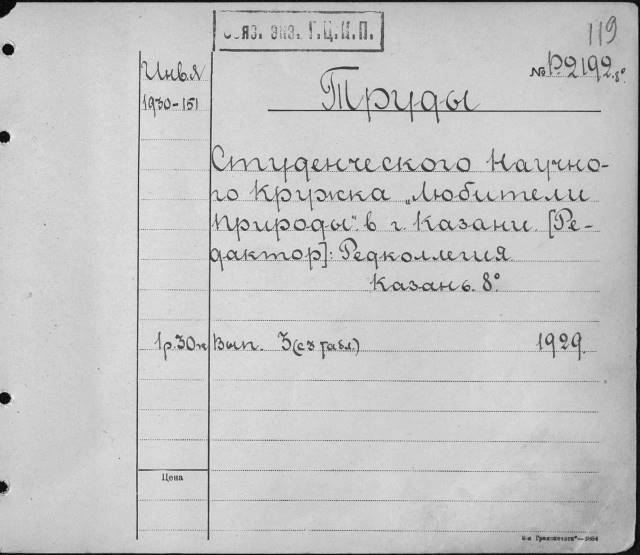 119
яз. экз. Г.Ц.К.П.
Инв. А
1930-151
№ Р.2192. 8°.
Труды
Студенческого Научно-
го Кружка „Любители
Природы". в г. Казани. [Ре-
дактор]: Редколлегия
Казань. 8°.
1р.30к Вып. 3 (съ табл.) 1929.
Цена